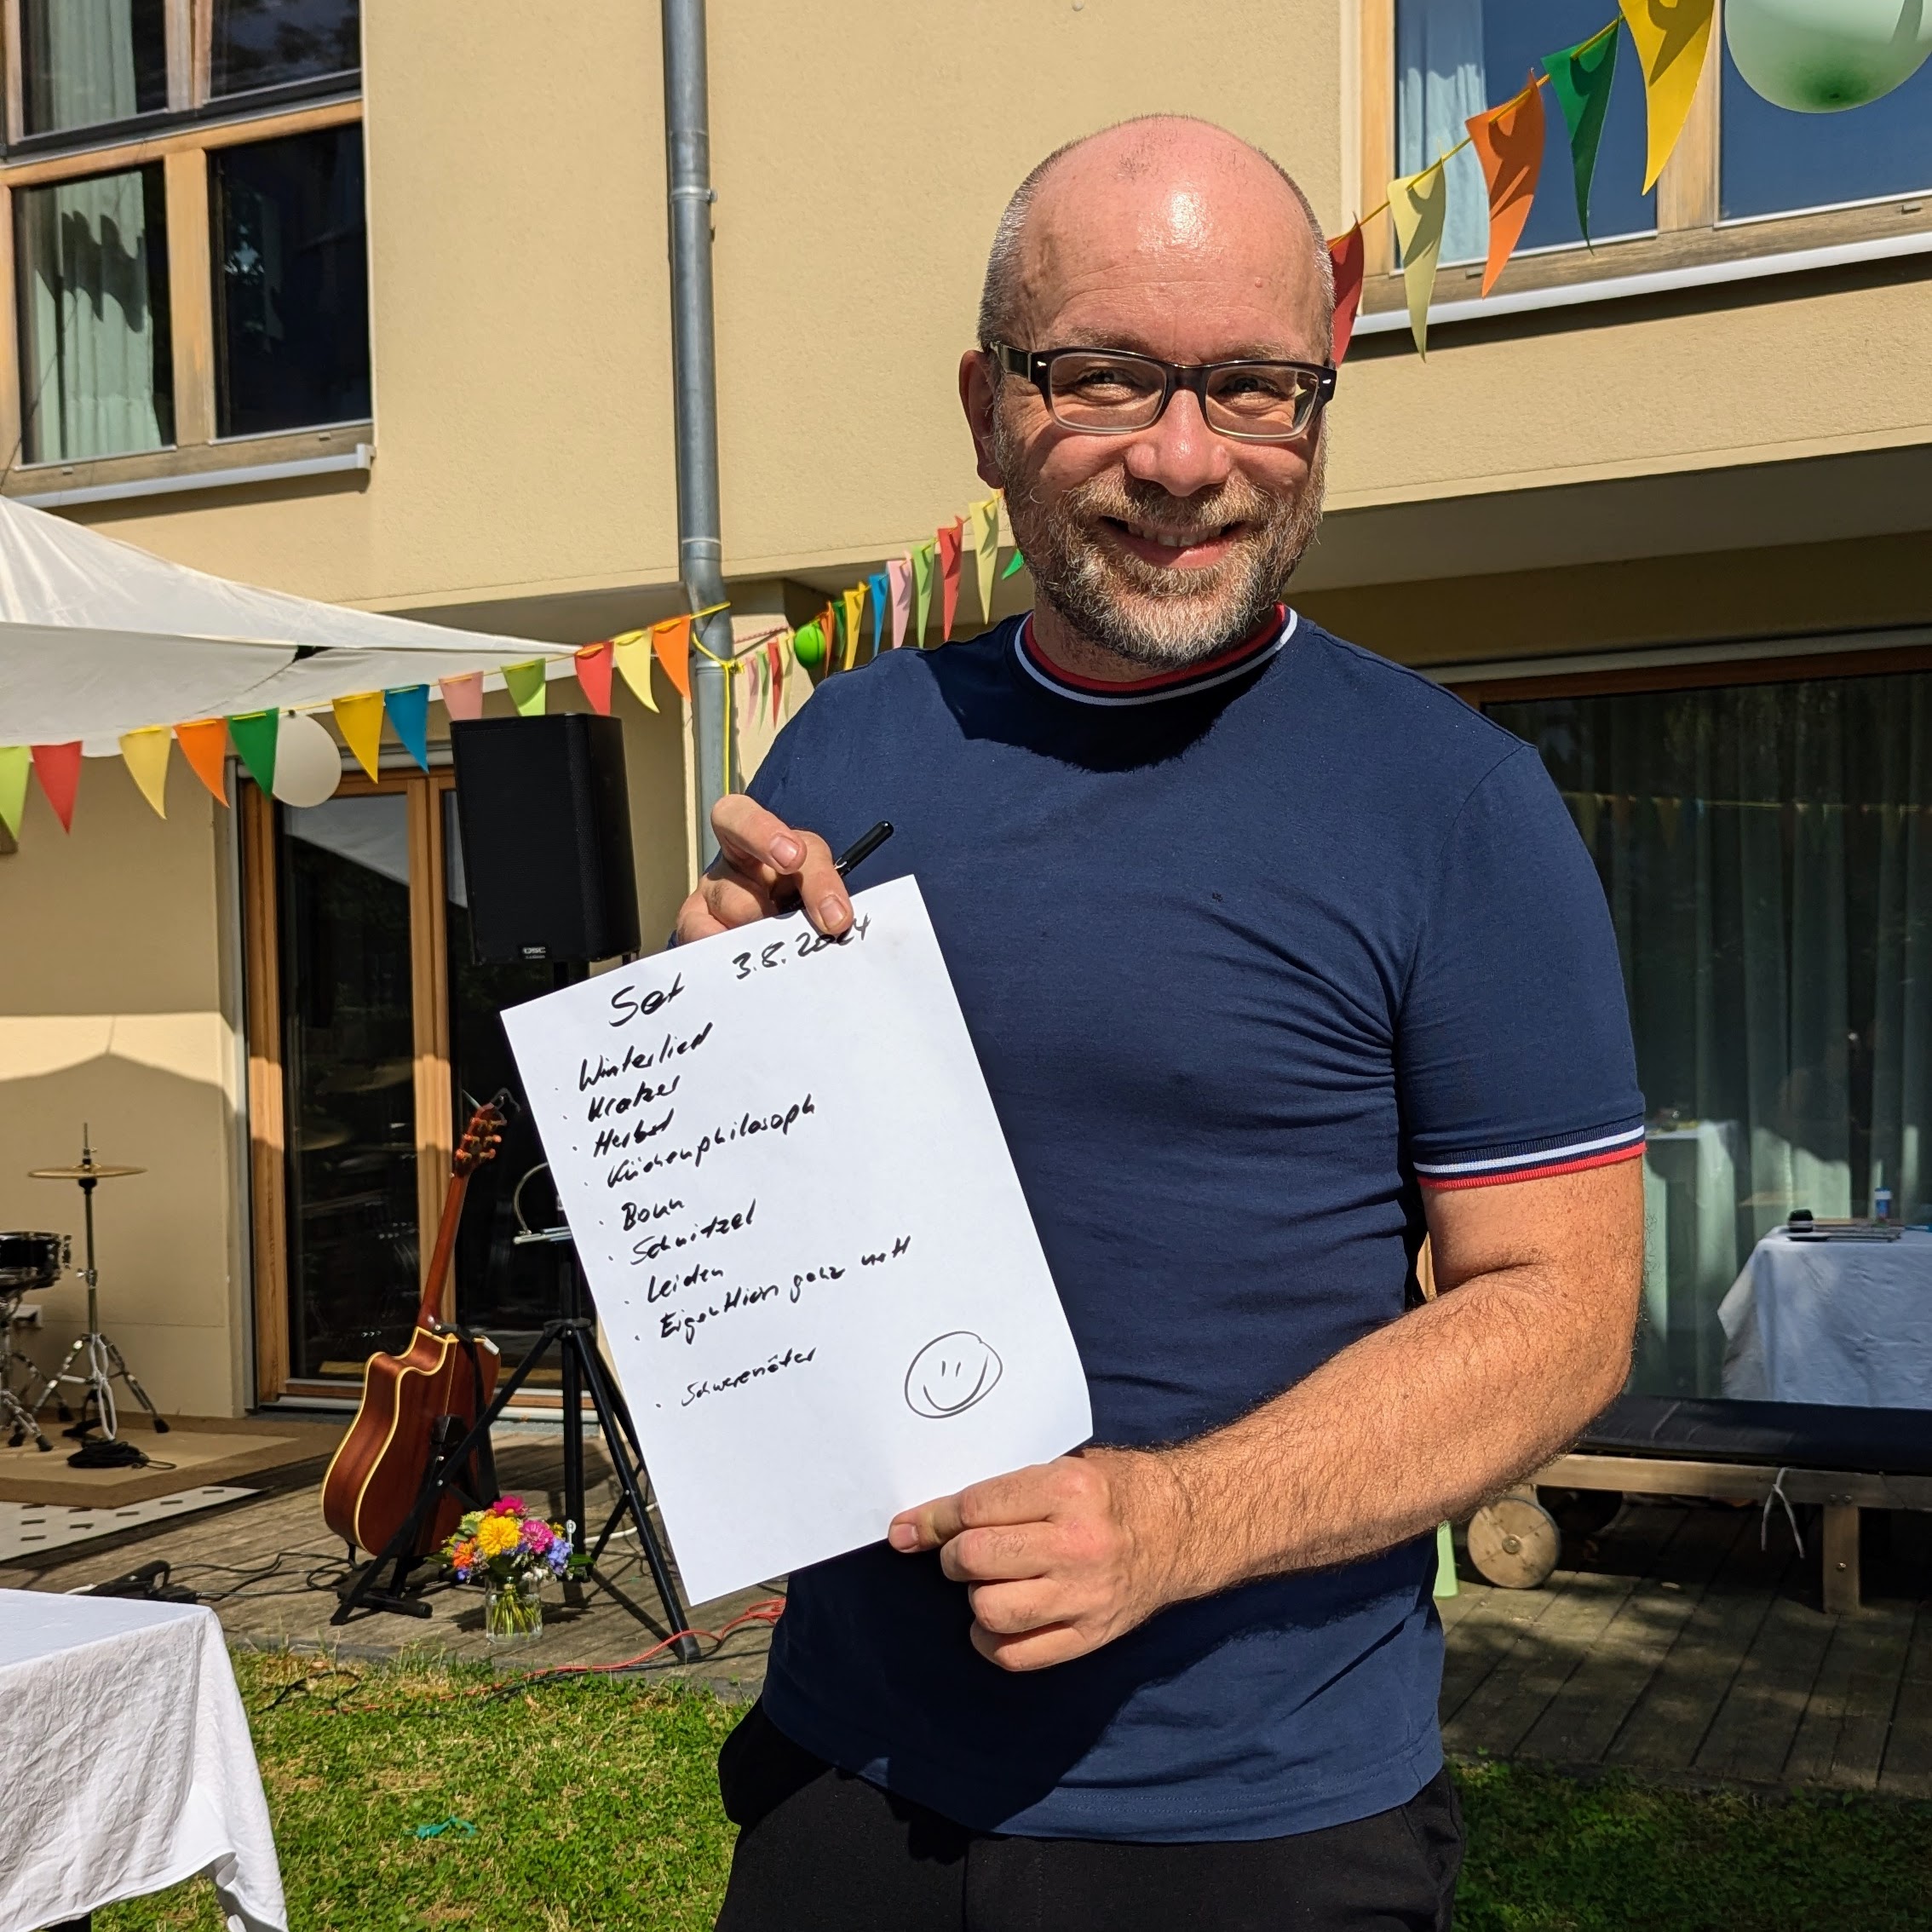 Set 3.8.2024
· Winterlied
· Kratzer
· Herbst
· Küchenphilosoph
· Bonn
· Schnitzel
· Leiden
· Eigentlich ganz nett
· Schwerenöter
QSC